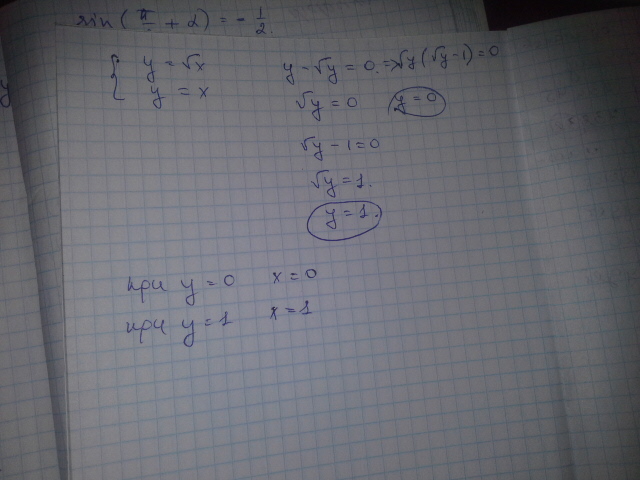 sin( π/ + 2) = - 1/2
{ y = √x
y = x
y - √y = 0. => √y(√y-1)=0
√y = 0 y = 0
√y - 1 = 0
√y = 1.
y = 1.
при y = 0 x = 0
при y = 1 x = 1